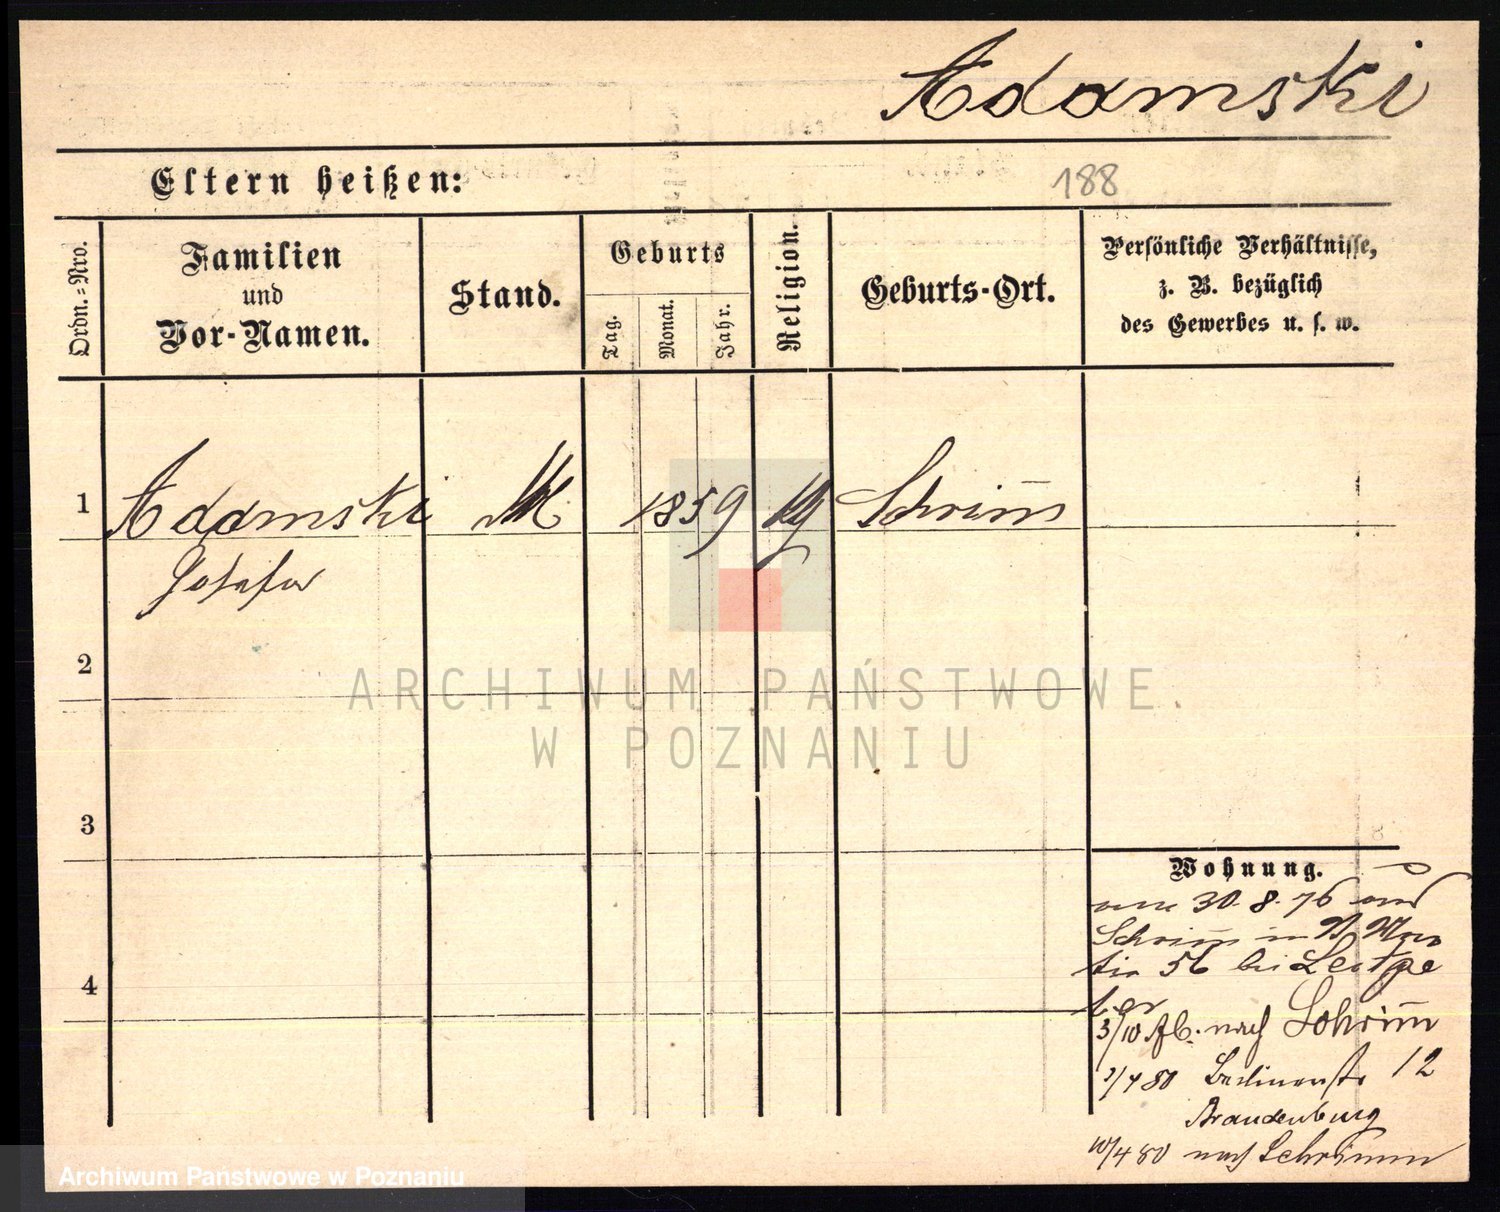 Adamski
Eltern heißen:
188
Ordn.=Nro.
Familien
und
Vor-Namen.
Stand.
Geburts
Tag.
Monat.
Jahr.
Religion.
Geburts-Ort.
Persönliche Verhältnisse,
z. B. bezüglich
des Gewerbes u. s. w.
1
Adamski
1859
Schrimm
Josefa
2
3
4
Wohnung.
30. 8. 76
Schrimm in
56 bei
3/10 76. nach Schrimm
1/4 80 Berlinerstr 12
Brandenburg
10/4 80 nach Schrimm
ARCHIWUM PAŃSTWOWE
W POZNANIU
Archiwum Państwowe w Poznaniu